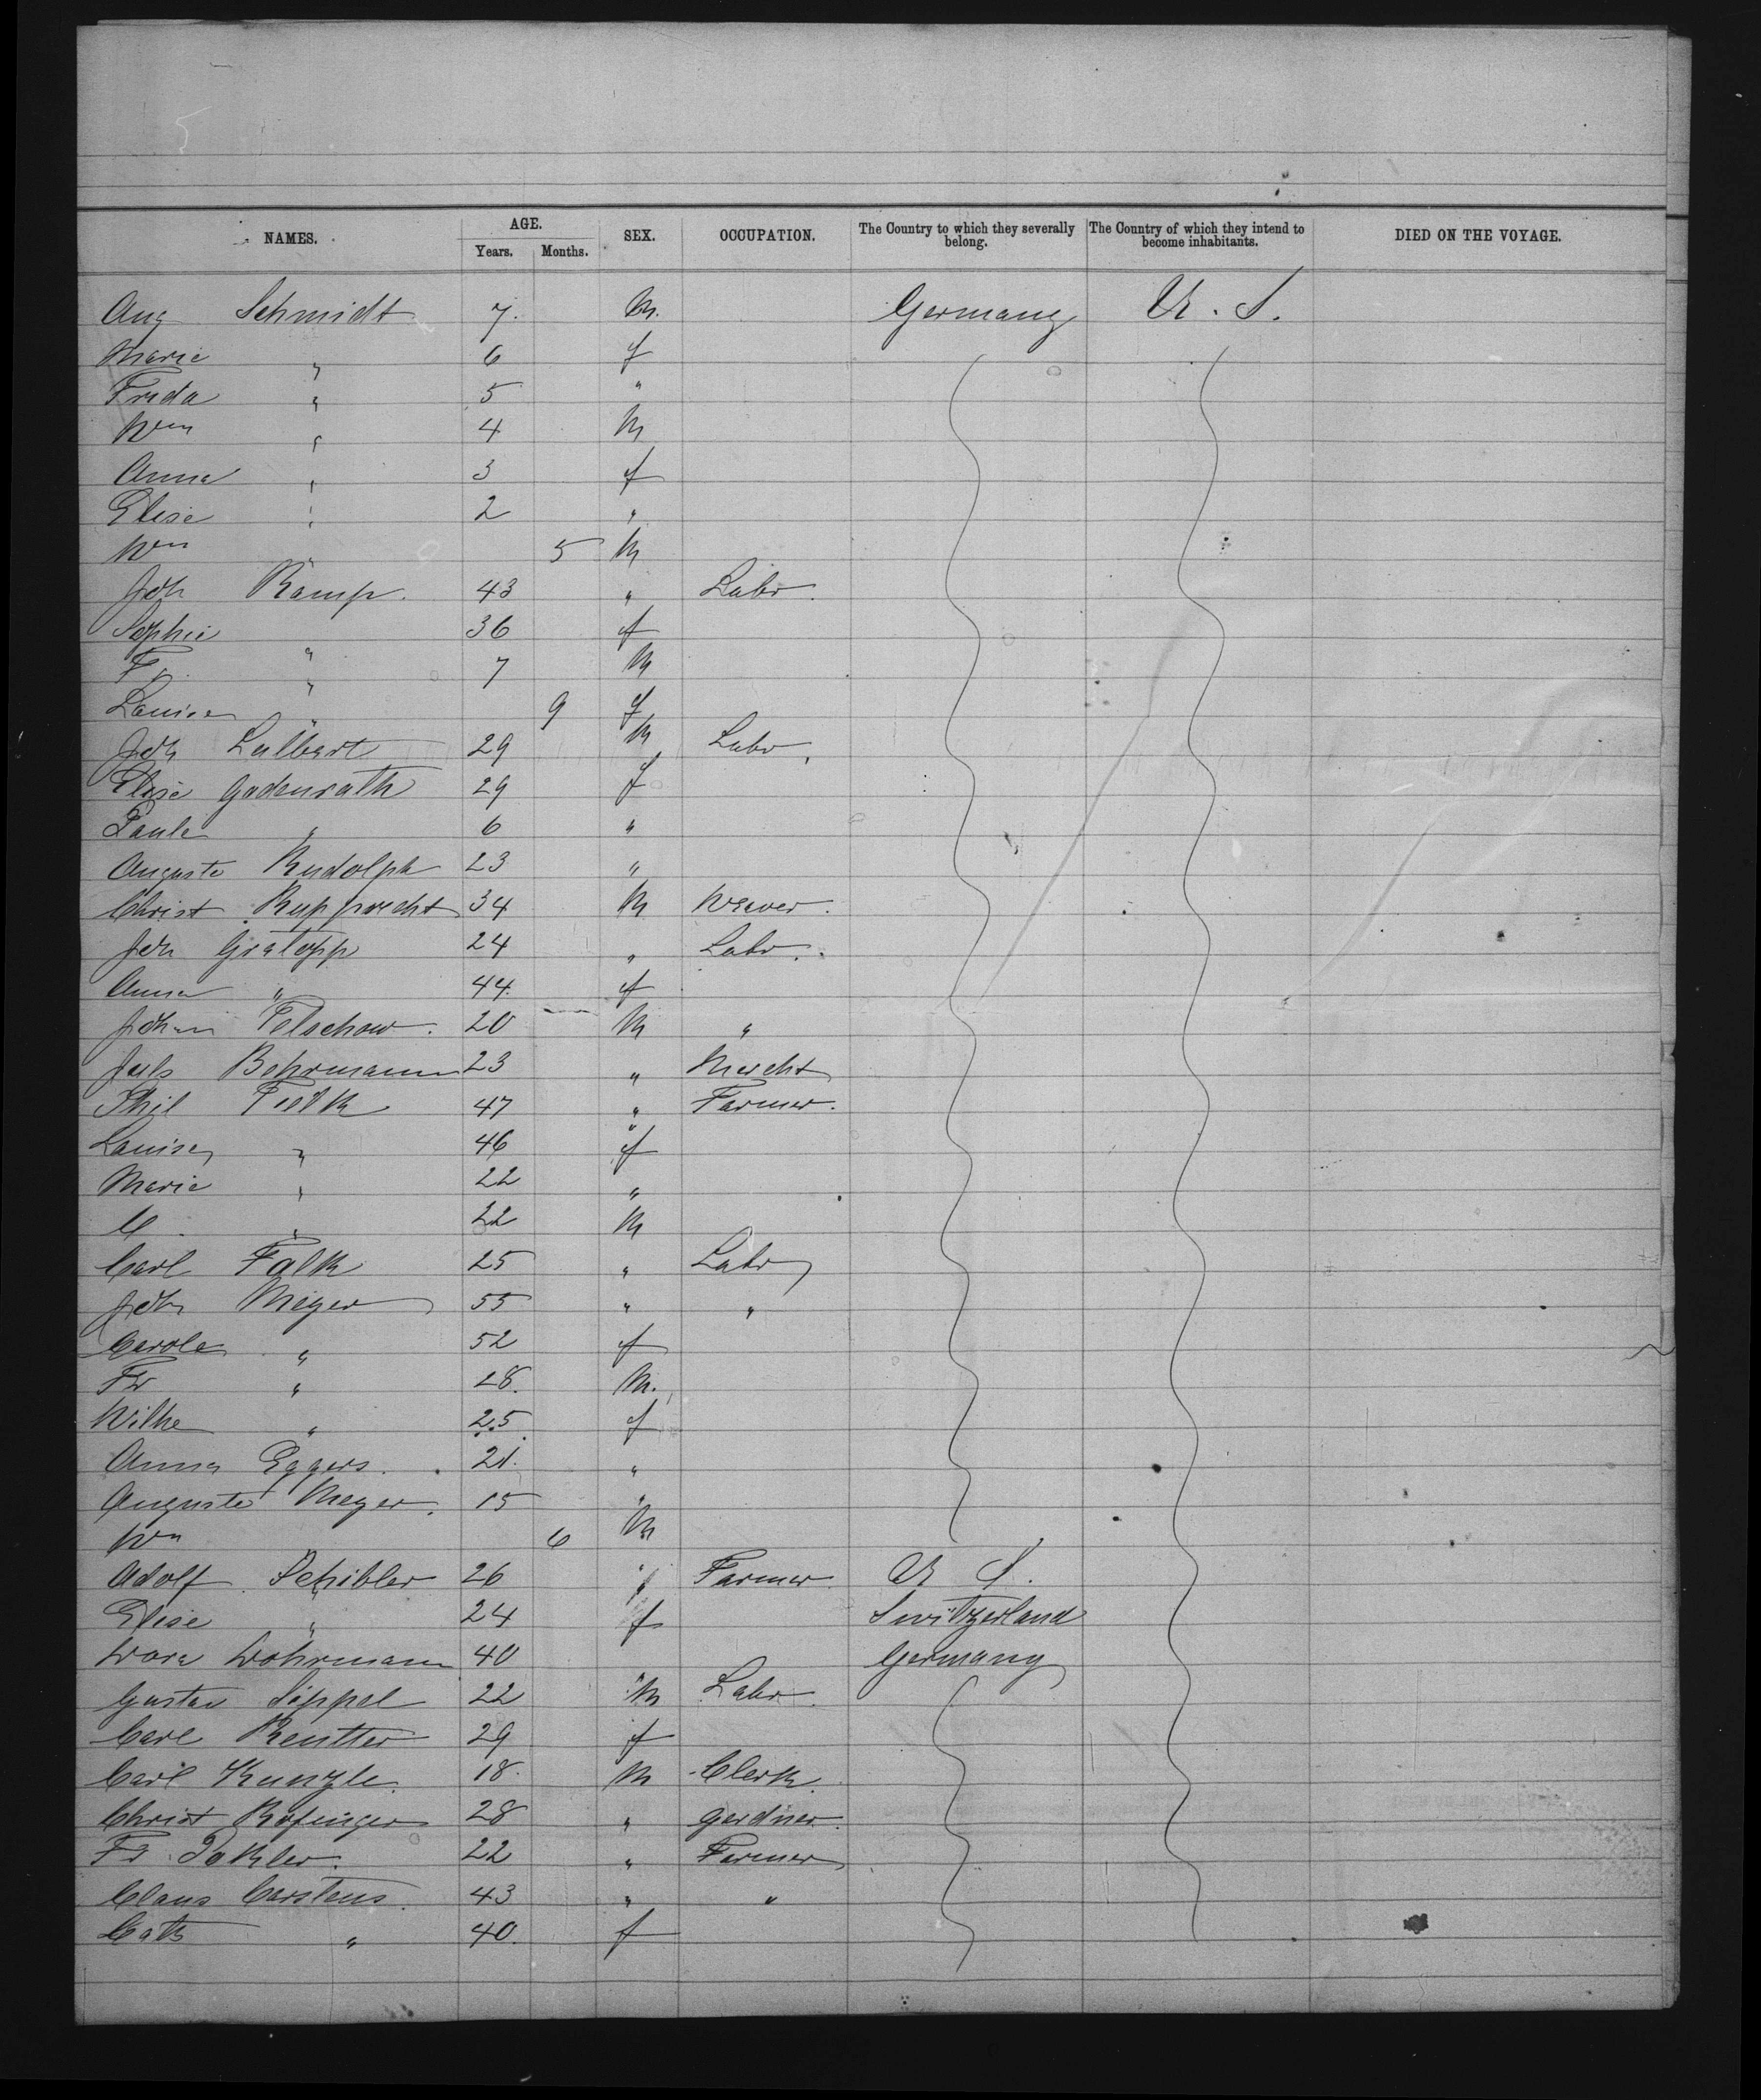 NAMES. AGE. SEX. OCCUPATION. The Country to which they severally belong. The Country of which they intend to become inhabitants. DIED ON THE VOYAGE.
Years. Months.
Aug Schmidt 7. M. Germany U. S.
Marie " 6 f
Frida " 5 "
Wm " 4 M
Anna " 3 f
Elise " 2 "
Wm " 5 M
Joh Kamp. 43 " Labr.
Sophie " 36 f
Fr. " 7 M
Louise " 9 f
Joh 29 M Labr.
Elise Godenrath 29 f
Paula " 6 "
Auguste Rudolph 23 "
Christ Rupprecht 34 M Weaver.
Joh Gralopp 24 " Labr.
Anna " 44. f
Johann Telschow. 20 M "
Juls Behrmann 23 " Mercht
Phil 47 " Farmer.
Louise " 46 f
Marie " 22 "
C. " 22 M
Carl Falk 25 " Labr
Joh Meyer 55 " "
Carola " 52 f
Fr " 28. M.
Wilhe " 25 f
Anna Eggers. 21. "
Auguste Meyer. 15 "
Wm 6 M
Adolf Schibler 26 " Farmer U S.
Elise " 24 f Switzerland
Dora Dohrmann 40 " Germany
Gustav Sippel 22 M Labr.
Carl Reutter 29 f
Carl Kunzle. 18. M Clerk.
Christ 28 " Gardner.
Fr 22 " Farmer
Claus Carstens. 43 " "
Cath " 40. f